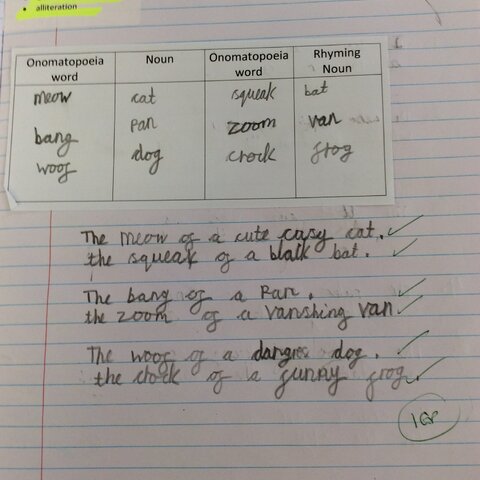 alliteration
Onomatopoeia word Noun Onomatopoeia word Rhyming Noun
meow cat squeak bat
bang pan zoom van
woof dog crock frog
The meow of a cute casy cat.
the squeak of a blalk bat.
The bang of a Pan.
the zoom of a vanshing van
The woof of a dangres dog.
the crock of a funny frog.